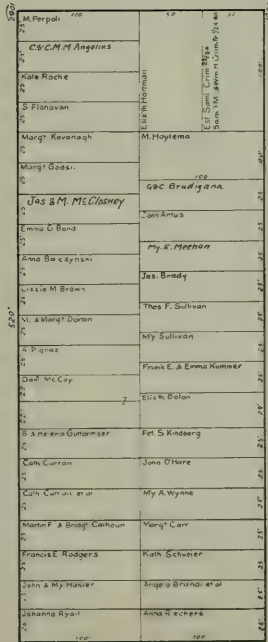 2901
100
50
50
M. Perpoli
C & C. M. M Angelius
Kate Roche
S Flanavan
Margt Kavanagh
Margt Godsi
Jas & M. McCloskey
Emma C Bond
Anna Baczynski
Lizzie M Brown
M. & Margt Doran
520'
Danl McCoy
B & Helena Guttormser
Cath Curran
Cath Curran et al
Martin F & Bridgt Calhoun
Francis E Rodgers
John & My Hasler
Johanna Ryall
100'
Elizth Hartman
Est Saml Crim 28/96
Sam'l M. & Wm H Crim Tr. 1/24 80
100'
M. Hoylema
100
G & C Brudigana
John Artus
My. E. Meehan
Jas. Brady
Thos F. Sullivan
My Sullivan
Frank E. & Emma Kummer
2
Elizth Dolan
Pet. S. Kindberg
John O'Hare
My A. Wynne
Margt Carr
Kath Schweier
Angelo Brandi et al
Anna Rechers
100